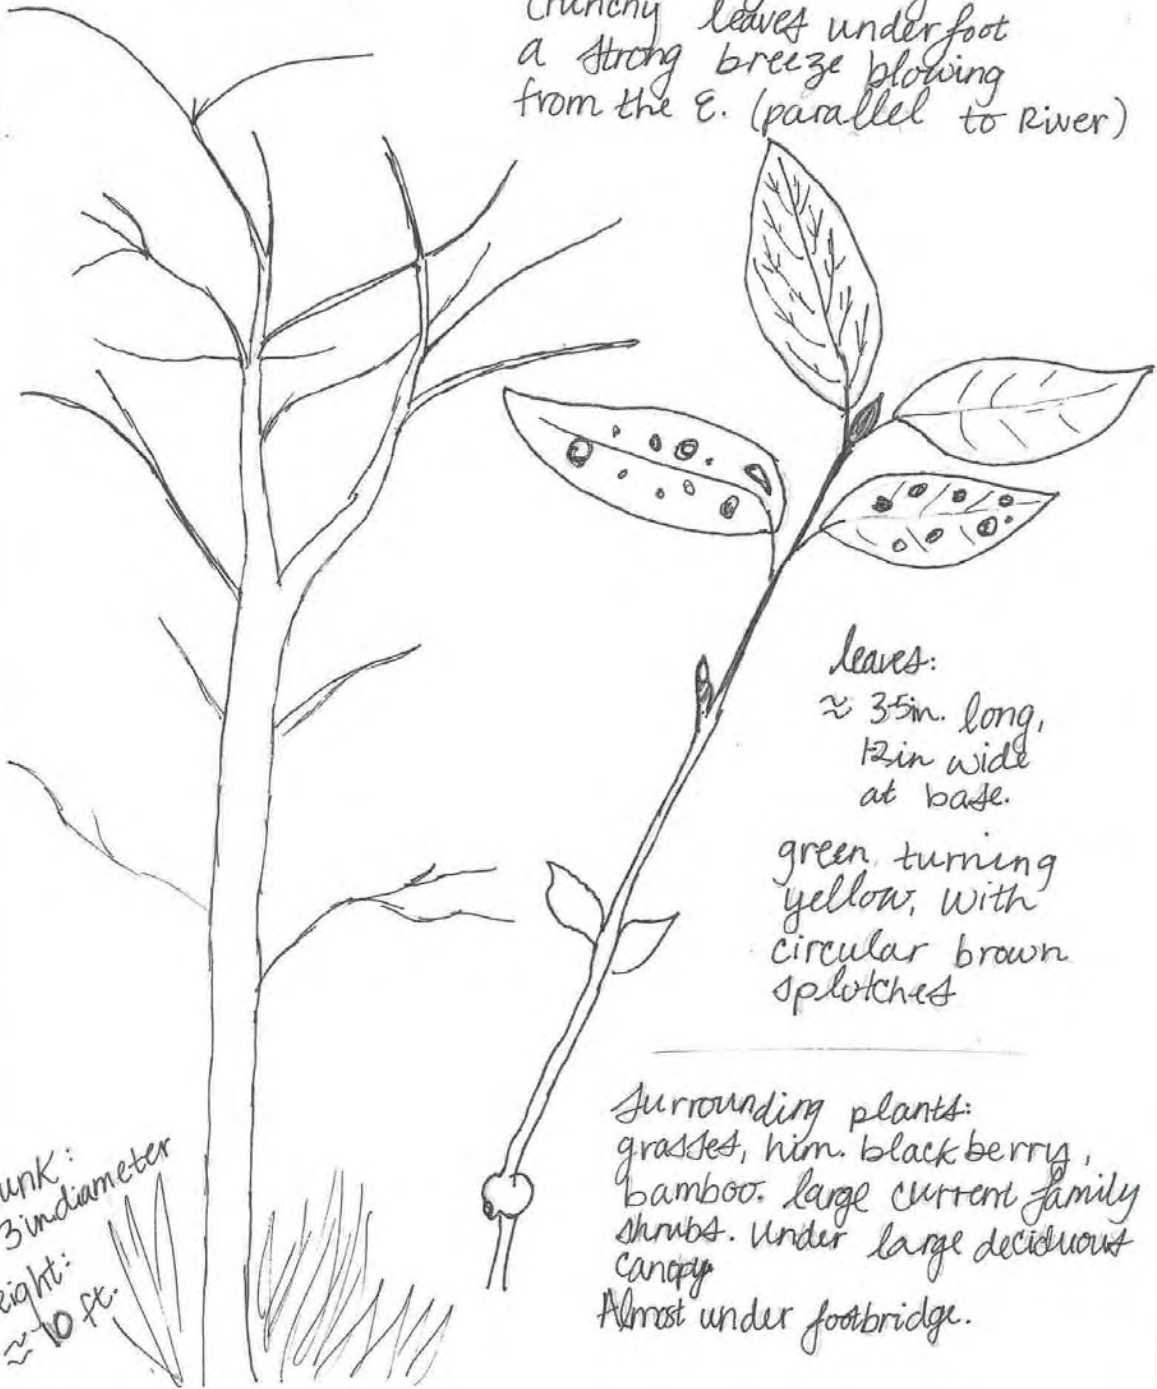 Crunchy leaves underfoot
a strong breeze blowing
from the E. (parallel to River)
leaves:
≈ 3-5in. long,
1-2in wide
at base.
green turning
yellow, with
circular brown
splotches
surrounding plants:
grasses, him. blackberry,
bamboo. large current family
shrubs. Under large deciduous
canopy.
Almost under footbridge.
unk:
3in diameter
eight:
≈ 10 ft.